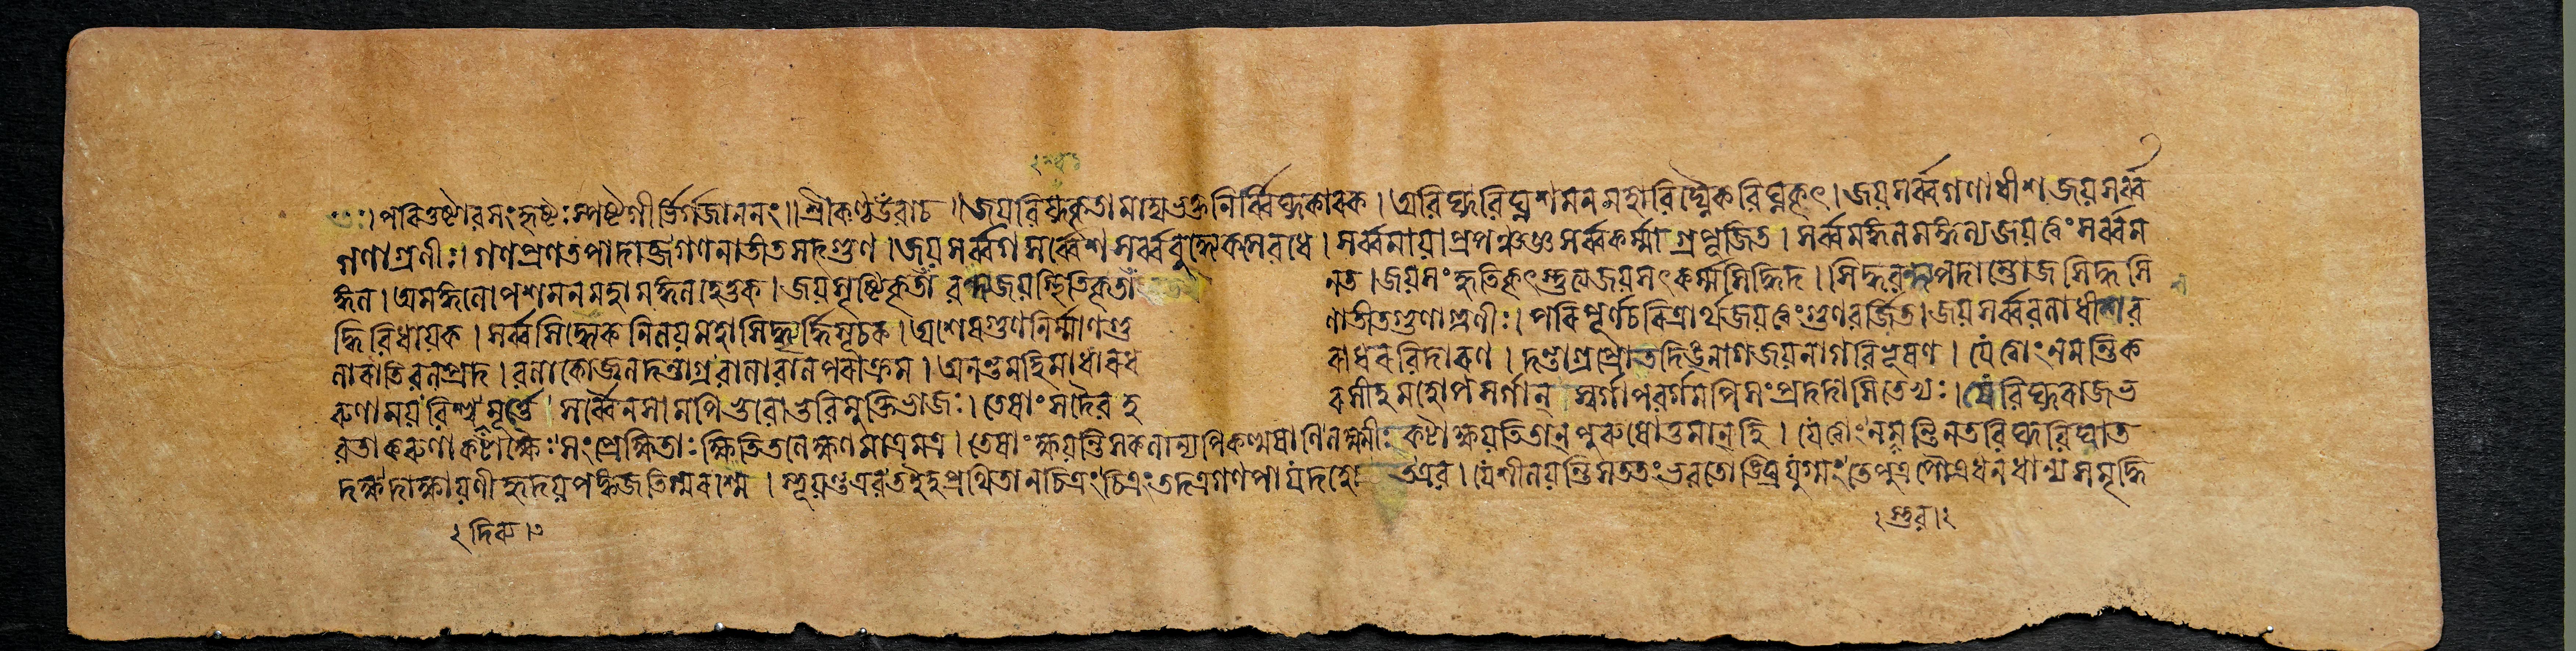 ণুঃ। পরিতুষ্টাব সংহৃষ্টঃ স্পষ্টগীর্ভির্গজাননং॥ শ্রীকণ্ঠ উবাচ॥ জয় বিঘ্নকৃতামাদ্য ভক্তনির্ব্বিঘ্নকারক। অবিঘ্নবিঘ্নশমন মহাবিঘ্নৈকবিঘ্নকৃৎ। জয় সর্ব্বগণাধীশ জয় সর্ব্ব
গণাগ্রণীঃ। গণপ্রণতপাদাব্জ গণনাতীতসদ্গুণ। জয় সর্ব্বগ সর্ব্বেশ সর্ব্ববুদ্ধ্যেকসেবধে। সর্ব্বমায়াপ্রপঞ্চজ্ঞ সর্ব্বকর্ম্মাগ্রপূজিত। সর্ব্বমঙ্গলমঙ্গল্য জয় ত্বং সর্ব্বম
ঙ্গল। অমঙ্গলোপশমন মহামঙ্গলহেতুক। জয় সৃষ্টিকৃতাং বন্দ্য জয় স্থিতিকৃতাং নত। জয় সংহৃতিকৃৎস্তুত্য জয় সৎকর্ম্মসিদ্ধিদ। সিদ্ধবন্দ্যপদাম্ভোজ সিদ্ধসি
দ্ধিবিধায়ক। সর্ব্বসিদ্ধ্যেকনিলয় মহাসিদ্ধ্যৃদ্ধিসূচক। অশেষগুণনির্ম্মাণগু ণাতীতগুণাগ্রণীঃ। পরিপূর্ণচরিত্রার্থ জয় ত্বং গুণবর্জিত। জয় সর্ব্ববলাধীশ ব
লারাতিবলপ্রদ। বলাকোজ্জ্বলদন্তাগ্র বালাবালপরাক্রম। অনন্তমহিমাধার ধ রাধরবিদারণ। দন্তাগ্রপ্রোতদিঙ্নাগ জয় নাগবিভূষণ। যে ত্বাং নমন্তি ক
রুণাময় বিশ্বমূর্ত্তে সর্ব্বৈনসামপি ভুবো ভুবি মুক্তিভাজঃ। তেষাং সদৈব হ রসীহ মহোপসর্গান্ স্বর্গাপবর্গমপি সংপ্রদদাসি তেভ্যঃ। যে বিঘ্নরাজ ভ
বতা করুণাকটাক্ষৈঃ সংপ্রেক্ষিতাঃ ক্ষিতিতলে ক্ষণমাত্রমত্র। তেষাং ক্ষয়ন্তি সকলান্যপি কল্মষাণি লক্ষ্মীঃ কটাক্ষয়তি তান্ পুরুষোত্তমান্ হি। যে ত্বাং নমন্তি নতবিঘ্নবিঘাত
দক্ষ দাক্ষায়ণীহৃদয়পঙ্কজতিগ্মরশ্মে। শ্রূয়ন্ত এব ত ইহ প্রথিতা ন চিত্রং চিত্রং তদত্র গণপা যদহো ত এব। যে শীলয়ন্তি সততং ভবতোঙ্ঘ্রিযুগ্মং তে পুত্রপৌত্রধনধান্যসমৃদ্ধি